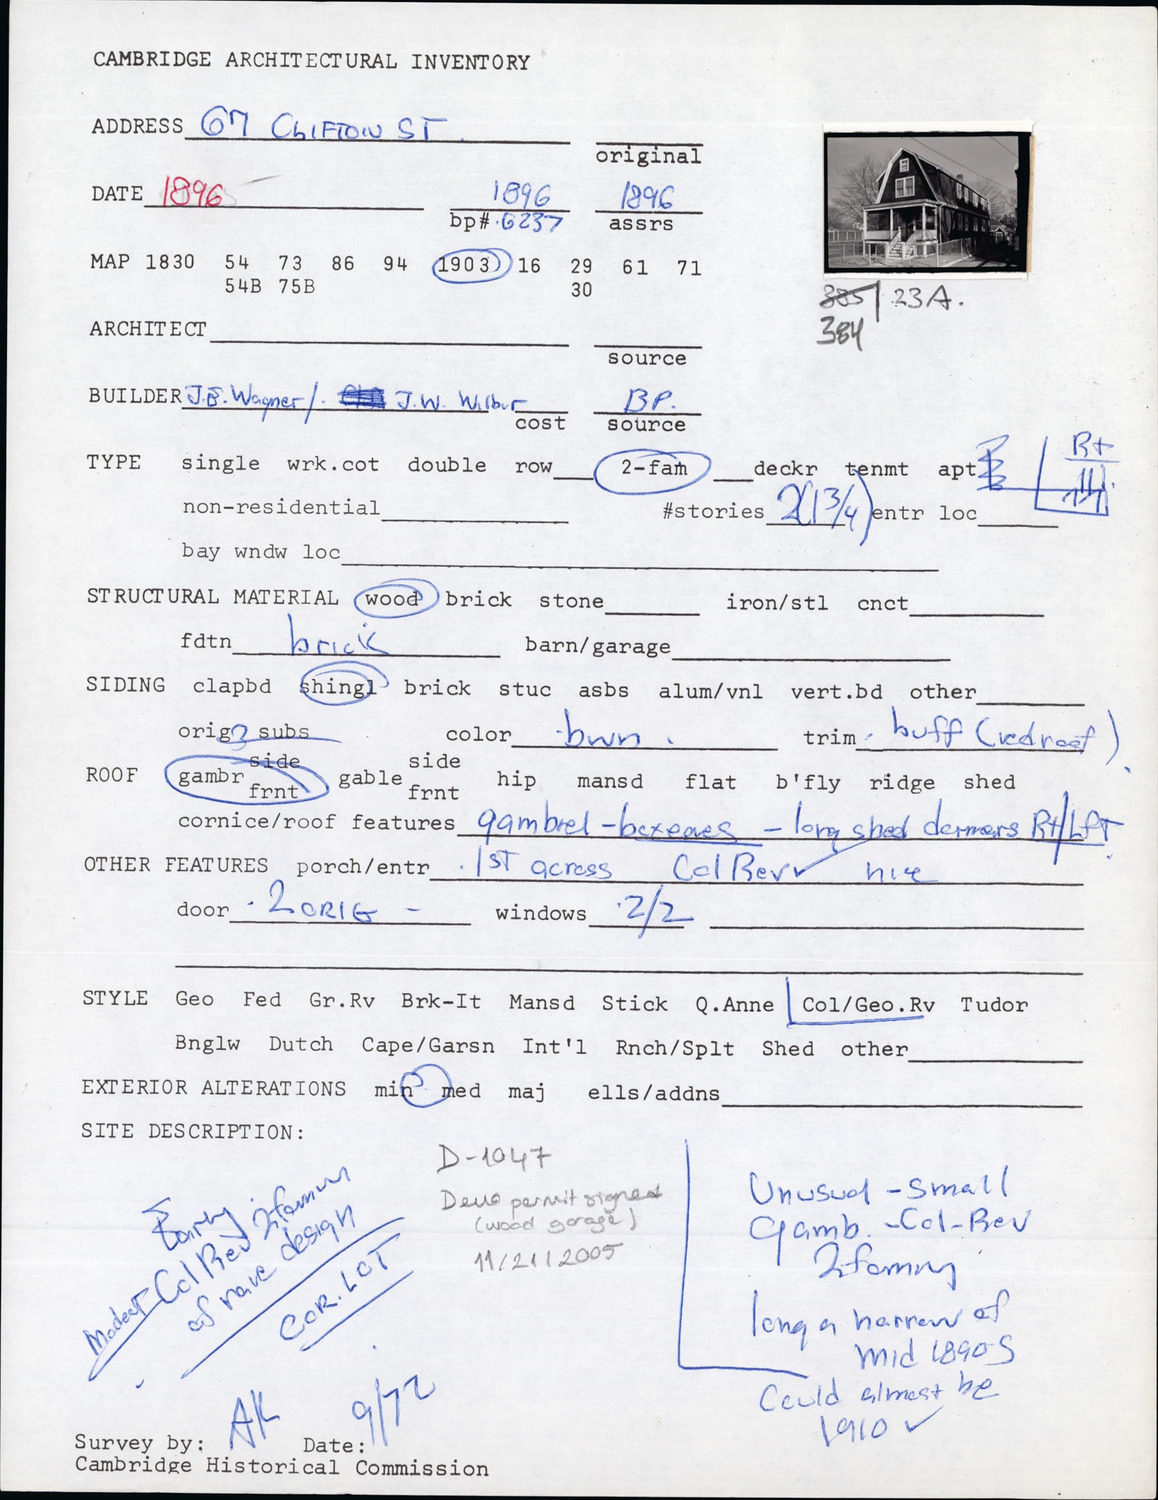 CAMBRIDGE ARCHITECTURAL INVENTORY
ADDRESS 67 CLIFTON ST.
original
DATE 1896 1896 1896
bp# 6237 assrs
MAP 1830 54 73 86 94 1903 16 29 61 71
54B 75B 30
385 / 23A.
384
ARCHITECT
source
BUILDER J.B. Wagner/. J.W. Wilbur BP.
cost source
TYPE single wrk.cot double row 2-fam deckr tenmt apt Rt
non-residential #stories 2(1 3/4) entr loc
bay wndw loc
STRUCTURAL MATERIAL wood brick stone iron/stl cnct
fdtn brick barn/garage
SIDING clapbd shingl brick stuc asbs alum/vnl vert.bd other
orig? subs color bwn. trim buff (red roof)
ROOF gambr side frnt gable side frnt hip mansd flat b'fly ridge shed
cornice/roof features gambrel - boxeaves - long shed dormers Rt/Lft
OTHER FEATURES porch/entr 1st across Col Rev ✓ nice
door 2 ORIG - windows 2/2
STYLE Geo Fed Gr.Rv Brk-It Mansd Stick Q.Anne Col/Geo.Rv Tudor
Bnglw Dutch Cape/Garsn Int'l Rnch/Splt Shed other
EXTERIOR ALTERATIONS min med maj ells/addns
SITE DESCRIPTION:
Early
Modest Col Rev 2 family
of rare design
COR. LOT
D-1047
Demo permit signed
(wood garage)
11/21/2005
Unusual - small
gamb. - Col-Rev
2 family
long & narrow of
mid 1890s
Could almost be
1910 ✓
Survey by: AK Date: 9/72
Cambridge Historical Commission